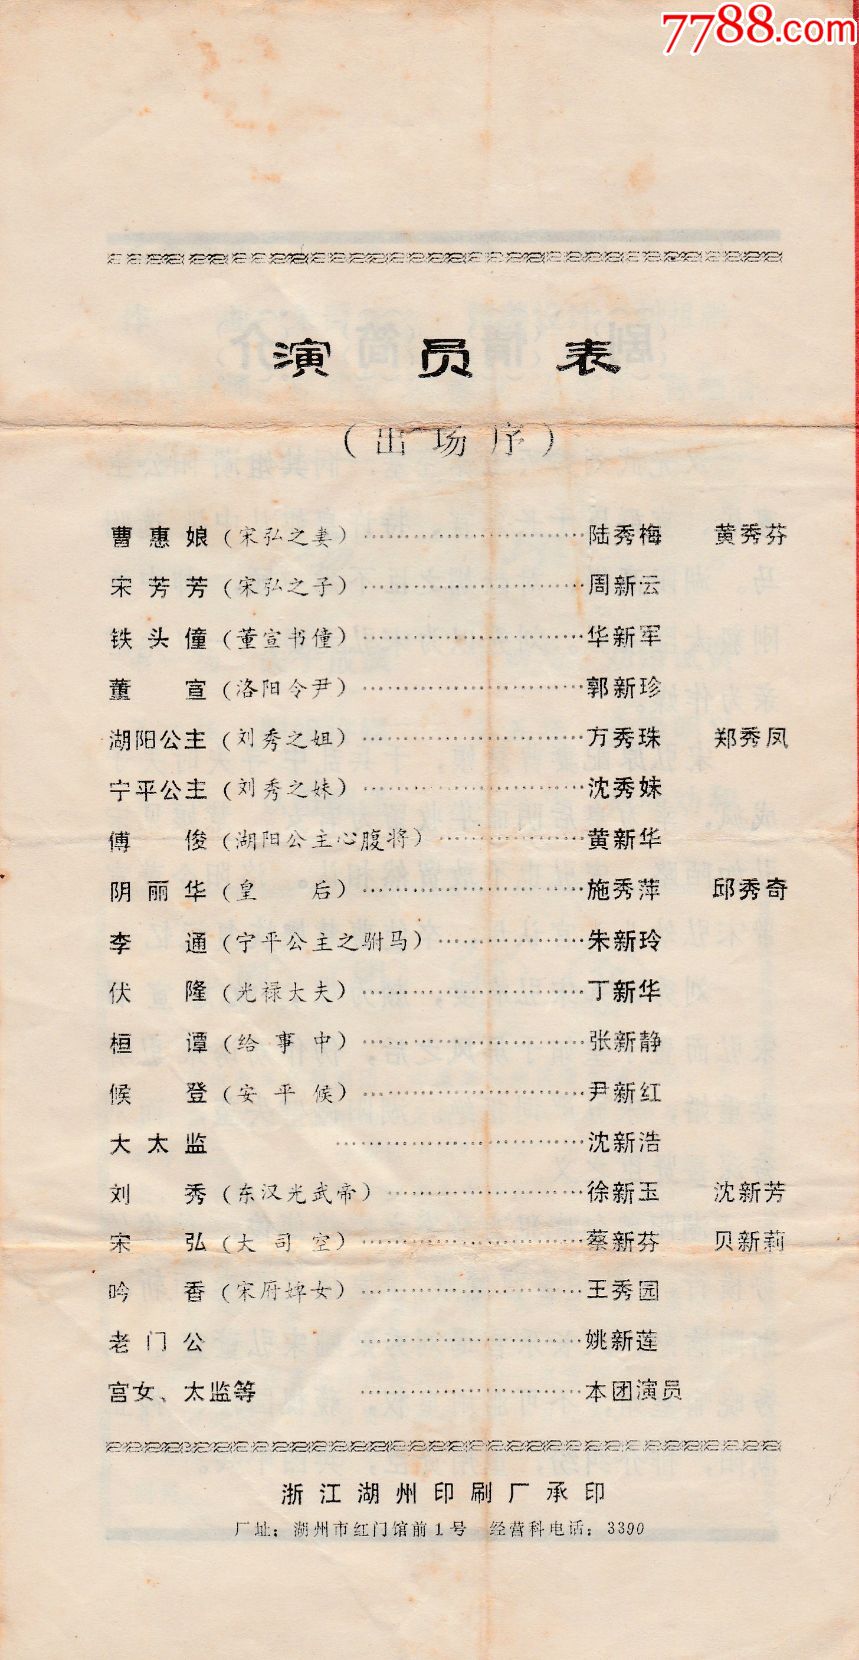 7788.com
演员表
(出场序)
曹惠娘(宋弘之妻)……………………陆秀梅 黄秀芬
宋芳芳(宋弘之子)……………………周新云
铁头僮(董宣书僮)……………………华新军
董宣(洛阳令尹)……………………郭新珍
湖阳公主(刘秀之姐)……………………方秀珠 郑秀凤
宁平公主(刘秀之妹)……………………沈秀妹
傅俊(湖阳公主心腹将)………………黄新华
阴丽华(皇后)……………………施秀萍 邱秀奇
李通(宁平公主之驸马)………………朱新玲
伏隆(光禄大夫)……………………丁新华
桓谭(给事中)……………………张新静
候登(安平候)……………………尹新红
大太监……………………沈新浩
刘秀(东汉光武帝)…………………徐新玉 沈新芳
宋弘(大司空)……………………蔡新芬 贝新莉
吟香(宋府婢女)……………………王秀园
老门公……………………姚新莲
宫女、太监等……………………本团演员
浙江湖州印刷厂承印
厂址:湖州市红门馆前1号 经营科电话:3390